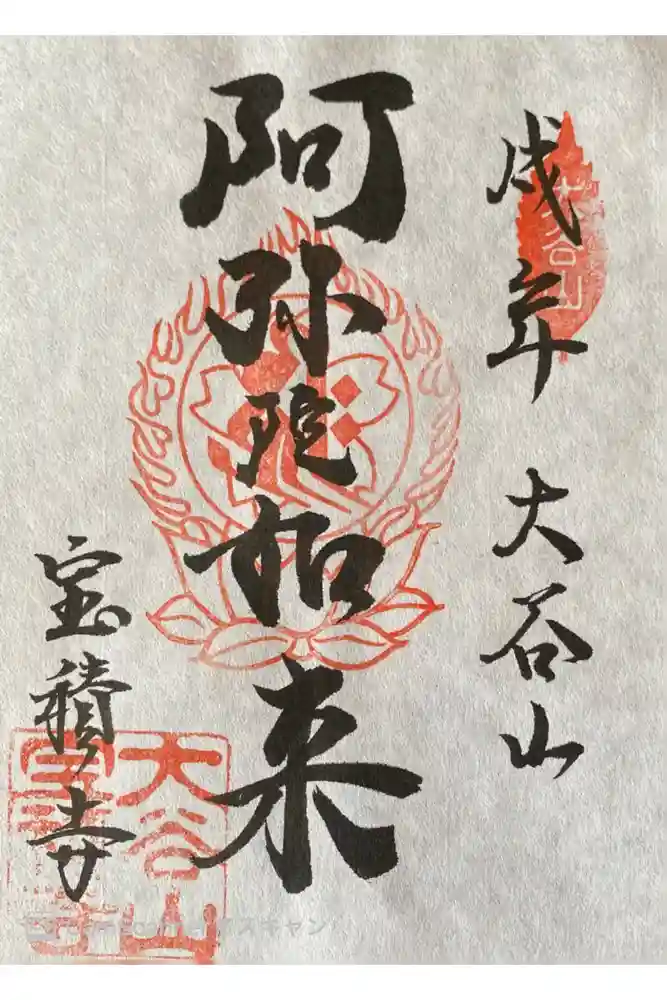 戌年 大谷山
大谷山
阿弥陀如来
宝積寺
大谷山
スキャン